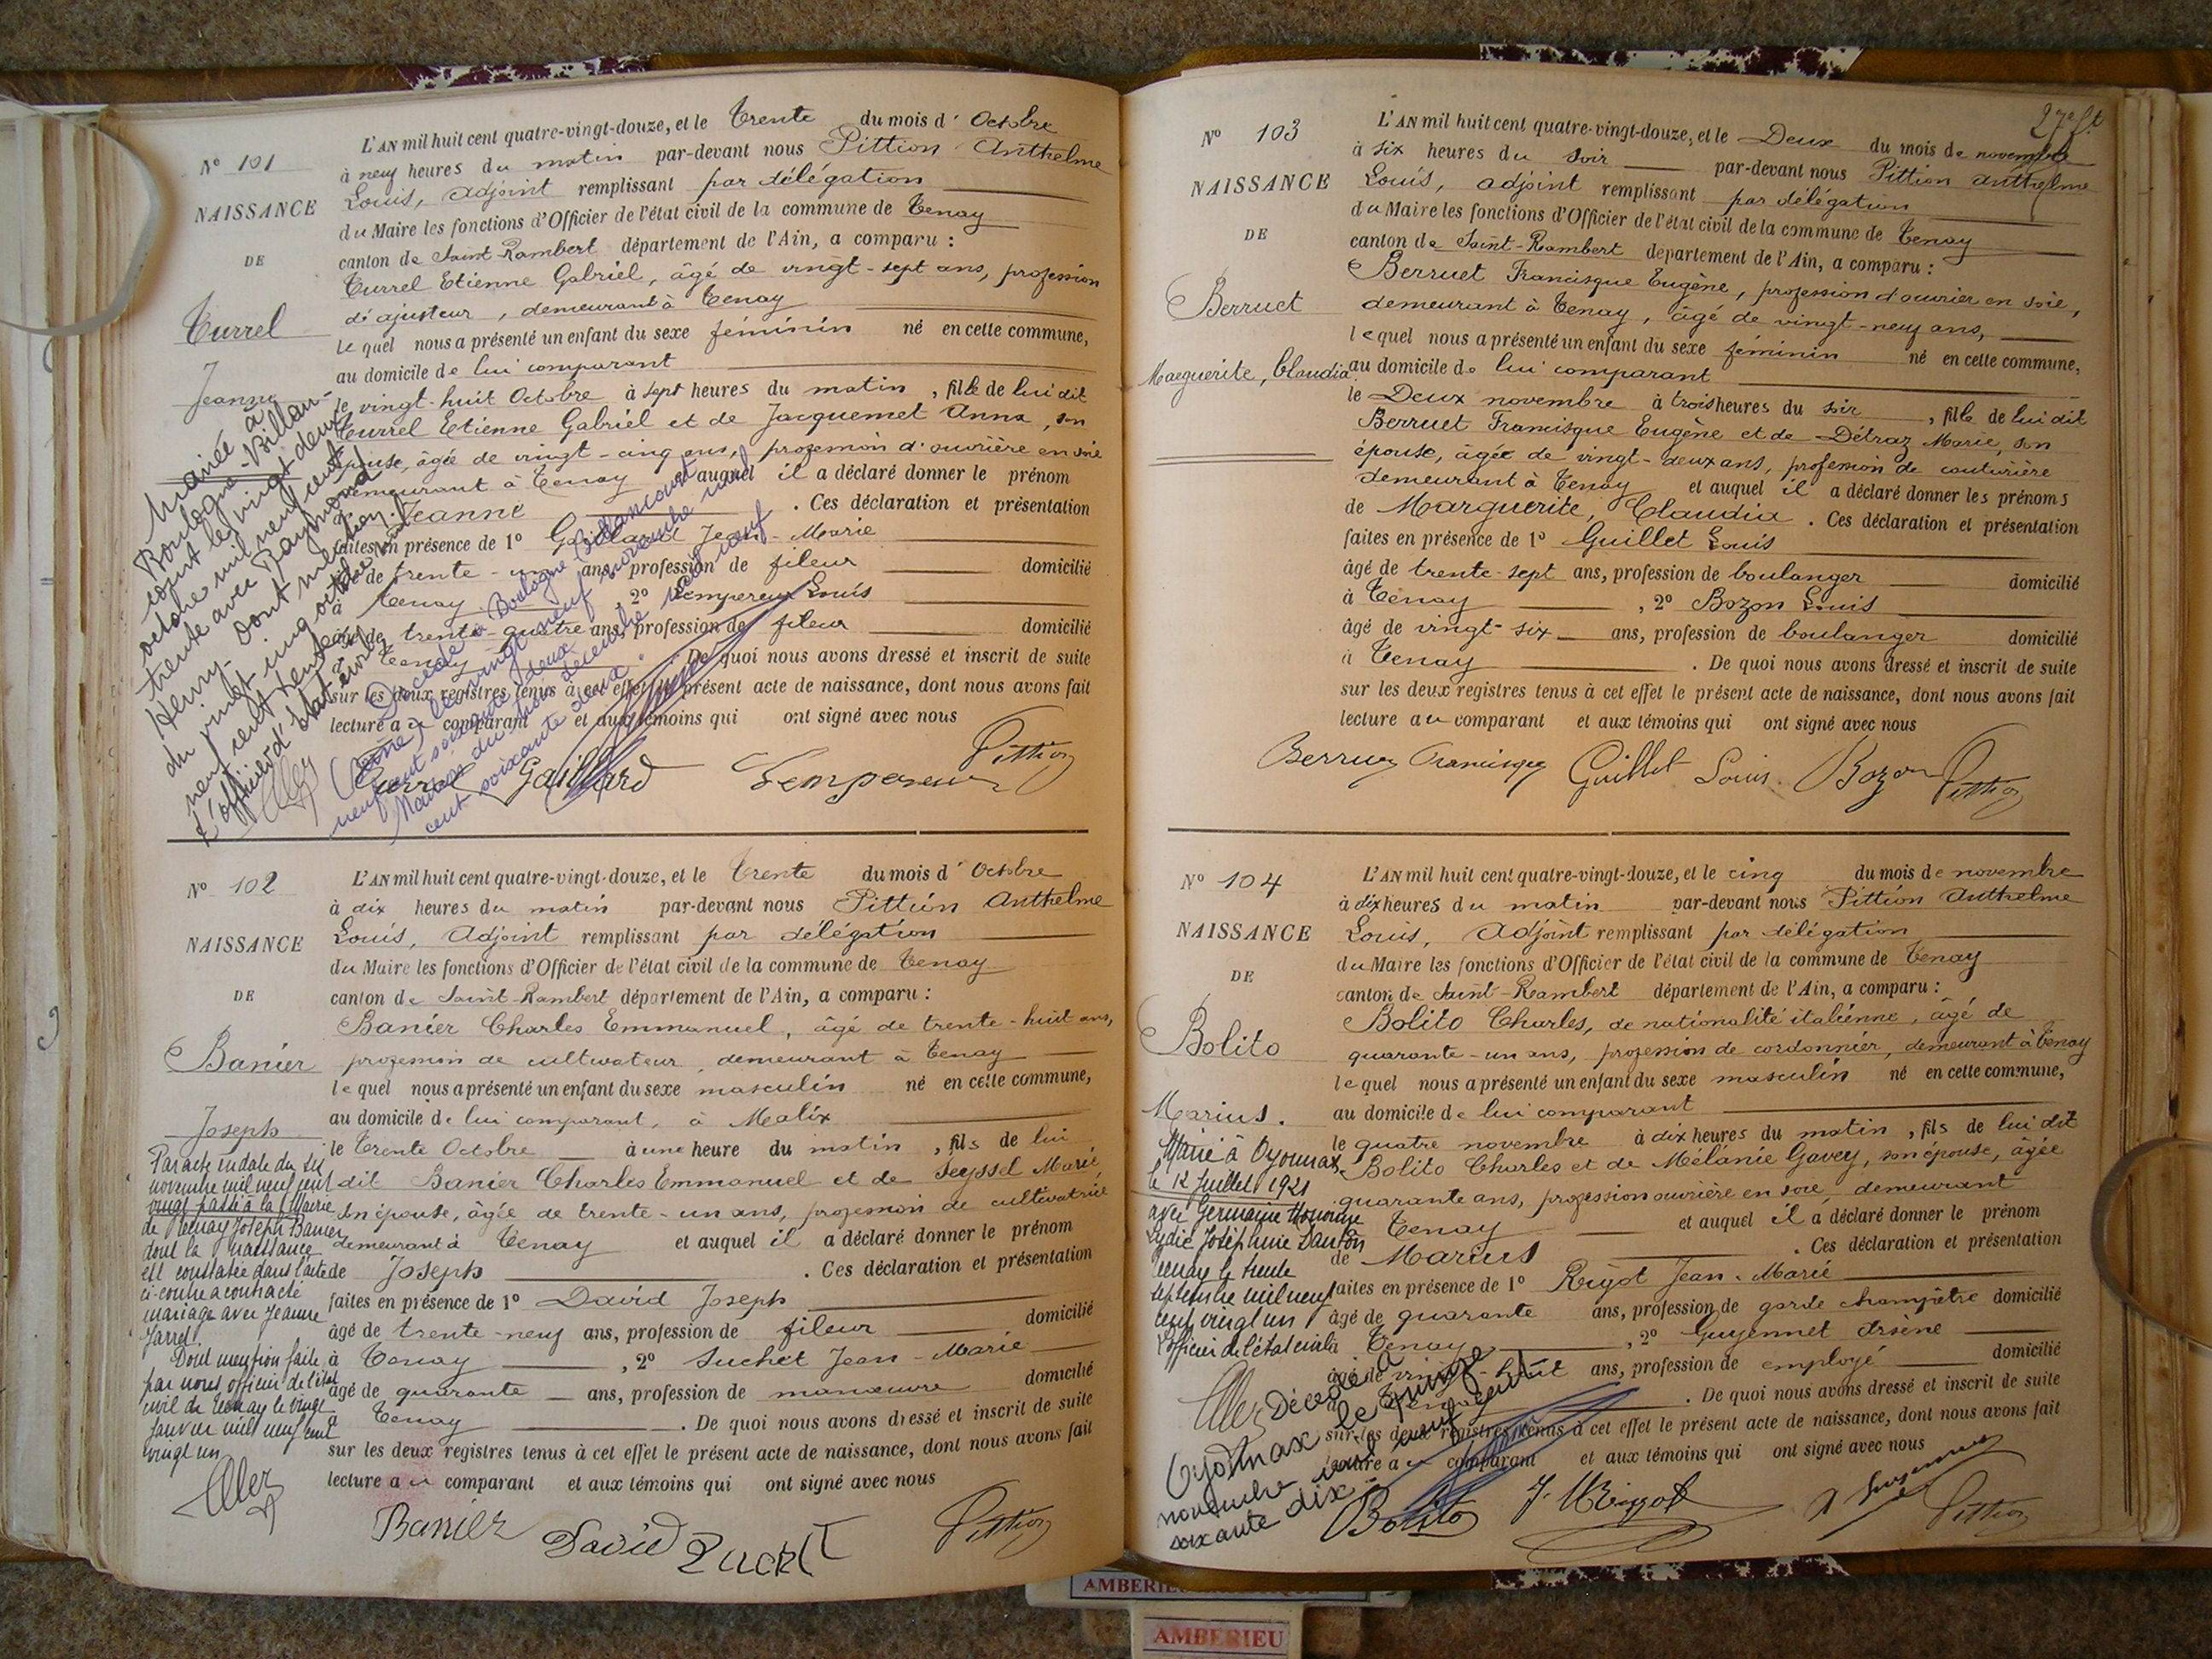 N° 101
NAISSANCE
DE
Turrel
Jeanne
L'AN mil huit cent quatre-vingt-douze, et le Trente du mois d'Octobre
à neuf heures du matin par-devant nous Pittion Anthelme
Louis, Adjoint remplissant par délégation
du Maire les fonctions d'Officier de l'état civil de la commune de Tenay
canton de Saint-Rambert département de l'Ain, a comparu :
Turrel Etienne Gabriel, âgé de vingt-sept ans, profession
d'ajusteur, demeurant à Tenay
lequel nous a présenté un enfant du sexe féminin né en cette commune,
au domicile de lui comparant
le vingt-huit Octobre à sept heures du matin, fille de lui dit
Turrel Etienne Gabriel et de Jacquemet Anna, son
épouse, âgée de vingt-cinq ans, profession d'ouvrière en soie
demeurant à Tenay et auquel il a déclaré donner le prénom
de Jeanne . Ces déclaration et présentation
faites en présence de 1° Gaillard Jean-Marie
âgé de trente- ans, profession de fileur domicilié
à Tenay , 2° Lempereur Louis
âgé de trente-quatre ans, profession de fileur domicilié
à Tenay . De quoi nous avons dressé et inscrit de suite
sur les deux registres tenus à cet effet le présent acte de naissance, dont nous avons fait
lecture au comparant et aux témoins qui ont signé avec nous
Turrel Gaillard Lempereur Pittion
Mariée à
Boulogne-Billan-
court le vingt-deux
octobre mil neuf cent
trente avec Raymond
Henry. Dont mention
du vingt-cinq octobre mil
neuf cent trente
L'officier d'état civil
Décédée à Boulogne Billancourt
(Seine) le vingt neuf novembre mil
neuf cent soixante deux
Mention du trois décembre mil neuf
cent soixante deux
N° 102
NAISSANCE
DE
Banier
Joseph
L'AN mil huit cent quatre-vingt-douze, et le Trente du mois d'Octobre
à dix heures du matin par-devant nous Pittion Anthelme
Louis, Adjoint remplissant par délégation
du Maire les fonctions d'Officier de l'état civil de la commune de Tenay
canton de Saint-Rambert département de l'Ain, a comparu :
Banier Charles Emmanuel, âgé de trente-huit ans,
profession de cultivateur, demeurant à Tenay
lequel nous a présenté un enfant du sexe masculin né en cette commune,
au domicile de lui comparant, à Malix
le Trente Octobre à une heure du matin, fils de lui
dit Banier Charles Emmanuel et de Seyssel Marie,
son épouse, âgée de trente-un ans, profession de cultivatrice
demeurant à Tenay et auquel il a déclaré donner le prénom
de Joseph . Ces déclaration et présentation
faites en présence de 1° David Joseph
âgé de trente-neuf ans, profession de fileur domicilié
à Tenay , 2° Suchet Jean-Marie
âgé de quarante ans, profession de manœuvre domicilié
à Tenay . De quoi nous avons dressé et inscrit de suite
sur les deux registres tenus à cet effet le présent acte de naissance, dont nous avons fait
lecture au comparant et aux témoins qui ont signé avec nous
Banier David Suchet Pittion
Par acte en date du six
novembre mil neuf cent
vingt passé à la Mairie
de Tenay Joseph Banier
dont la naissance
est constatée dans l'acte
ci-contre a contracté
mariage avec Jeanne
Jarrel.
Dont mention faite
par nous officier de l'état
civil de Tenay le vingt
janvier mil neuf cent
vingt un
27e ft
N° 103
NAISSANCE
DE
Berruet
Marguerite, Claudia.
L'AN mil huit cent quatre-vingt-douze, et le Deux du mois de novembre
à six heures du soir par-devant nous Pittion Anthelme
Louis, adjoint remplissant par délégation
du Maire les fonctions d'Officier de l'état civil de la commune de Tenay
canton de Saint-Rambert département de l'Ain, a comparu :
Berruet Francisque Eugène, profession d'ouvrier en soie,
demeurant à Tenay, âgé de vingt-neuf ans,
lequel nous a présenté un enfant du sexe féminin né en cette commune,
au domicile de lui comparant
le Deux novembre à trois heures du soir, fille de lui dit
Berruet Francisque Eugène et de Détraz Marie, son
épouse, âgée de vingt-deux ans, profession de couturière
demeurant à Tenay et auquel il a déclaré donner les prénoms
de Marguerite, Claudia. Ces déclaration et présentation
faites en présence de 1° Guillet Louis
âgé de trente-sept ans, profession de boulanger domicilié
à Tenay , 2° Bozon Louis
âgé de vingt-six ans, profession de boulanger domicilié
à Tenay . De quoi nous avons dressé et inscrit de suite
sur les deux registres tenus à cet effet le présent acte de naissance, dont nous avons fait
lecture au comparant et aux témoins qui ont signé avec nous
Berruet Francisque Guillet Louis. Bozon Pittion
N° 104
NAISSANCE
DE
Bolito
Marius.
L'AN mil huit cent quatre-vingt-douze, et le cinq du mois de novembre
à dix heures du matin par-devant nous Pittion Anthelme
Louis, Adjoint remplissant par délégation
du Maire les fonctions d'Officier de l'état civil de la commune de Tenay
canton de Saint-Rambert département de l'Ain, a comparu :
Bolito Charles, de nationalité italienne, âgé de
quarante-un ans, profession de cordonnier, demeurant à Tenay
lequel nous a présenté un enfant du sexe masculin né en cette commune,
au domicile de lui comparant
le quatre novembre à dix heures du matin, fils de lui dit
Bolito Charles et de Mélanie Gavey, son épouse, âgée
quarante ans, profession ouvrière en soie, demeurant
Tenay et auquel il a déclaré donner le prénom
de Marius . Ces déclaration et présentation
faites en présence de 1° Rigot Jean-Marie
âgé de quarante ans, profession de garde champêtre domicilié
à Tenay , 2° Guyennet Arsène
âgé de vingt-huit ans, profession de employé domicilié
à Tenay . De quoi nous avons dressé et inscrit de suite
sur les deux registres tenus à cet effet le présent acte de naissance, dont nous avons fait
lecture au comparant et aux témoins qui ont signé avec nous
Bolito Pittion
Marié à Oyonnax
le 12 Juillet 1921
avec Germaine
Lydie Joséphine Danton
Tenay le trente
septembre mil neuf
cent vingt un
L'officier de l'état civil
Décédé à
Oyonnax le quinze
novembre mil neuf cent
soixante dix
AMBERIEU